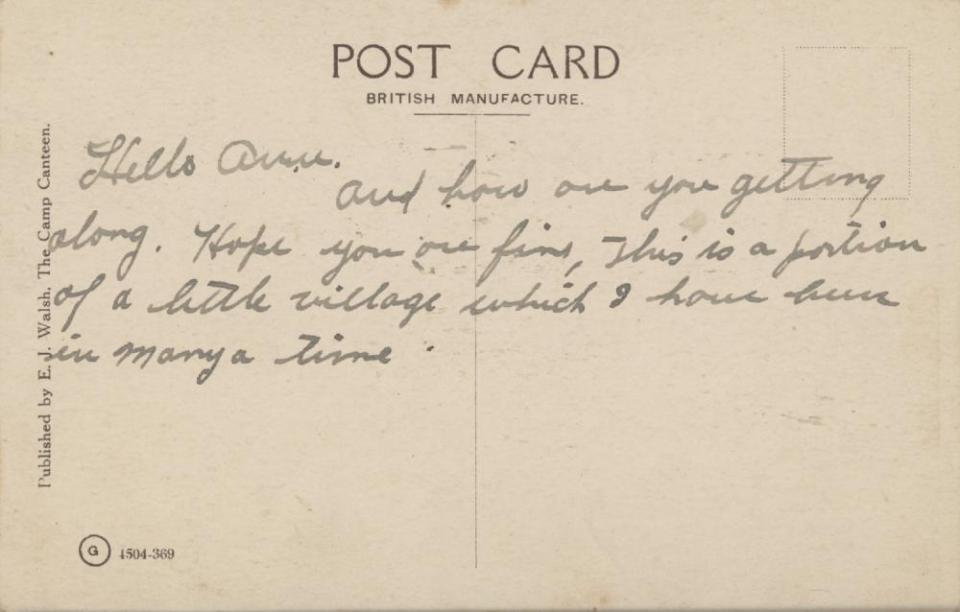 POST CARD
BRITISH MANUFACTURE.
Hello Ann.
and how are you getting
along. Hope you are fine, This is a portion
of a little village which I have been
in many a time.
Published by E. J. Walsh. The Camp Canteen.
G 4504-369